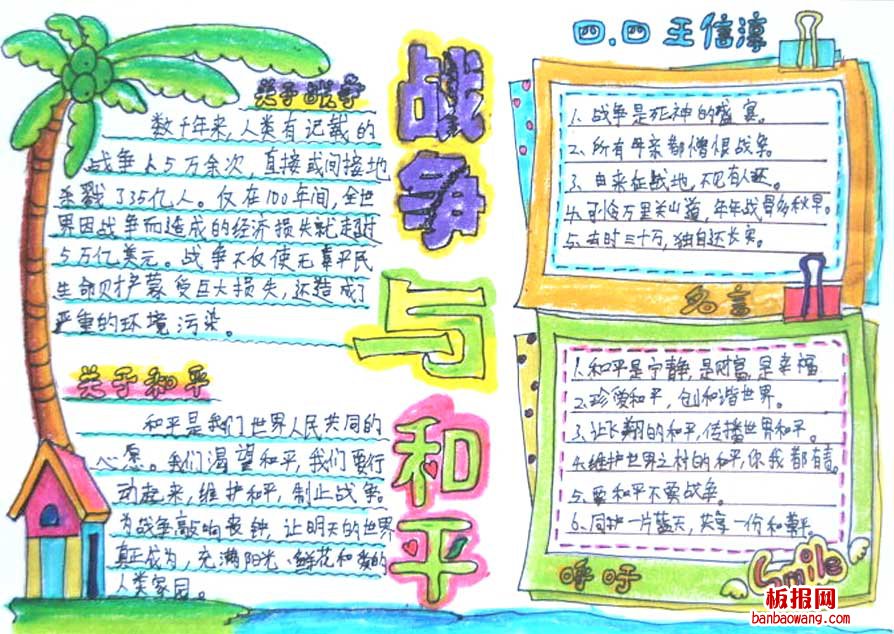 战争与和平
四.四 王信淳
关于战争
数千年来,人类有记载的
战争1.5万余次,直接或间接地
杀戮了35亿人。仅在100年间,全世
界因战争而造成的经济损失就超过
5万亿美元。战争不仅使无辜平民
生命财产蒙受巨大损失,还造成了
严重的环境污染。
关于和平
和平是我们世界人民共同的
心愿。我们渴望和平,我们要行
动起来,维护和平,制止战争。
为战争敲响丧钟,让明天的世界
真正成为,充满阳光、鲜花和爱的
人类家园。
1.战争是死神的盛宴。
2.所有母亲都憎恨战争。
3.由来征战地,不见有人还。
4.可怜万里关山道,年年战骨多秋草。
5.去时三十万,独自还长安。
名言
1.和平是宁静,是财富,是幸福
2.珍爱和平,创和谐世界。
3.让飞翔的和平,传播世界和平。
4.维护世界之村的和平,你我都有责。
5.要和平不要战争。
6.同护一片蓝天,共享一份和平。
呼吁
Smile
板报网
banbaowang.com